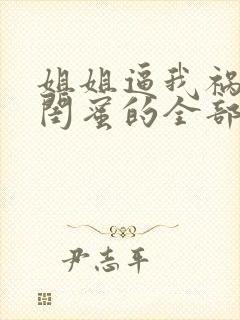 姐姐逼我祸
闺蜜的全部
尹志平